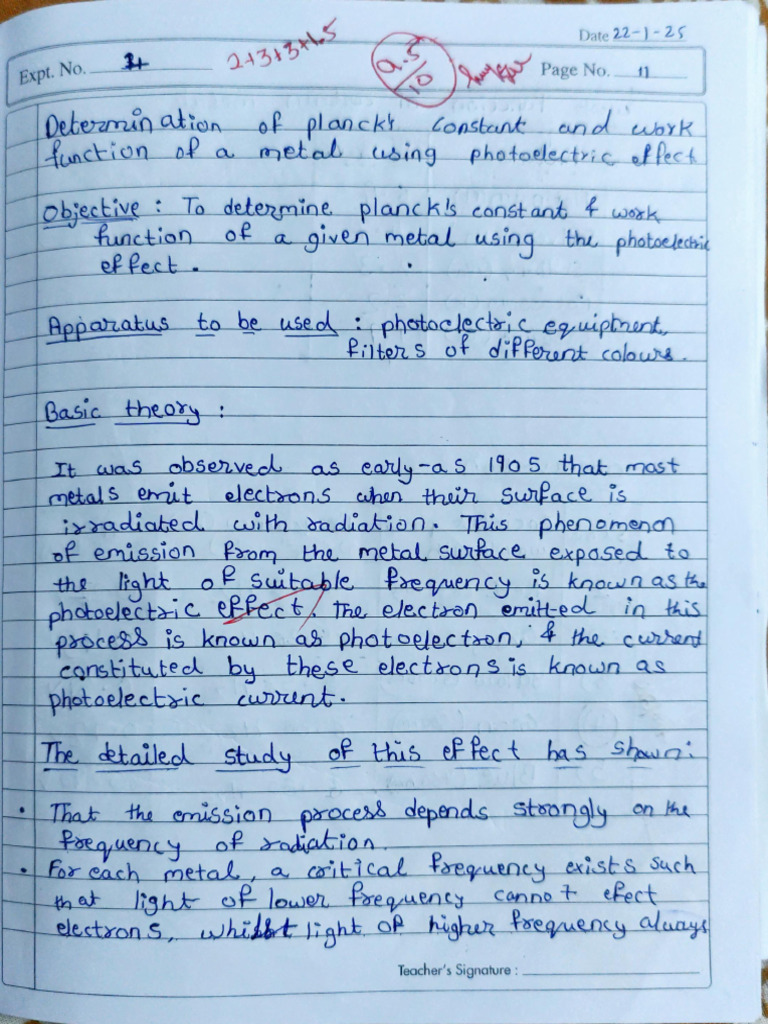 Date 22-1-25
Expt. No.
2+3+3+1.5
9.5/10
Page No. 11
Determination of planck's constant and work
function of a metal using photoelectric effect
Objective : To determine planck's constant & work
function of a given metal using the photoelectric
effect.
Apparatus to be used : photoelectric equiptment,
filters of different colours.
Basic theory :
It was observed as early-as 1905 that most
metals emit electrons when their surface is
irradiated with radiation. This phenomenon
of emission from the metal surface exposed to
the light of suitable frequency is known as the
photoelectric effect, The electron emitted in this
process is known as photoelectron, & the current
constituted by these electrons is known as
photoelectric current.
The detailed study of this effect has shown:
• That the emission process depends strongly on the
frequency of radiation.
• For each metal, a critical frequency exists such
that light of lower frequency cannot efect
electrons, whilst light of higher frequency always
Teacher's Signature :